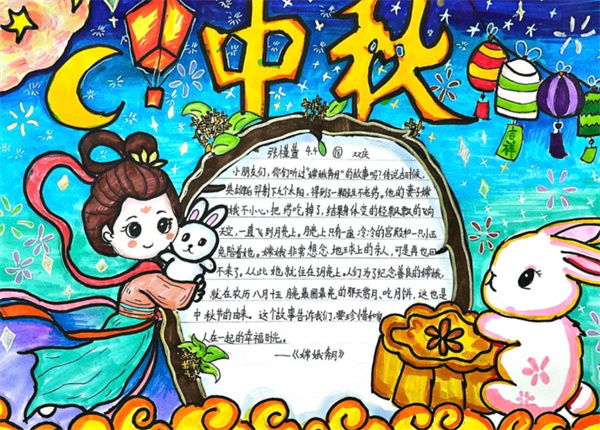 中秋
吉祥
张槿萱 4.4
小朋友们,你们听过“嫦娥奔月”的故事吗?传说古时候,
英雄后羿射下九个太阳,得到了一颗长生不老药。他的妻子嫦
娥不小心,把药吃掉了,结果身体变的轻飘飘的飞向
天空,一直飞到月亮上。月亮上只有一座冷冷的宫殿和一只小玉
兔陪着她。嫦娥非常想念地球上的亲人,可是再也回
不来了。从此她就住在月亮上。人们为了纪念善良的嫦娥,
就在农历八月十五月亮最圆最亮的那天赏月、吃月饼,这也是
中秋节的由来。这个故事告诉我们,要珍惜和
人在一起的幸福时光。
——《嫦娥奔月》